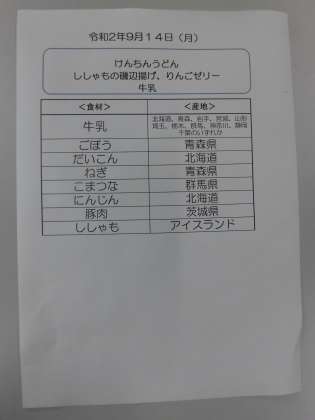 令和2年9月14日（月）
けんちんうどん
ししゃもの磯辺揚げ、りんごゼリー
牛乳
＜食材＞ ＜産地＞
牛乳 北海道、青森、岩手、宮城、山形
埼玉、栃木、群馬、神奈川、静岡
千葉のいずれか
ごぼう 青森県
だいこん 北海道
ねぎ 青森県
こまつな 群馬県
にんじん 北海道
豚肉 茨城県
ししゃも アイスランド